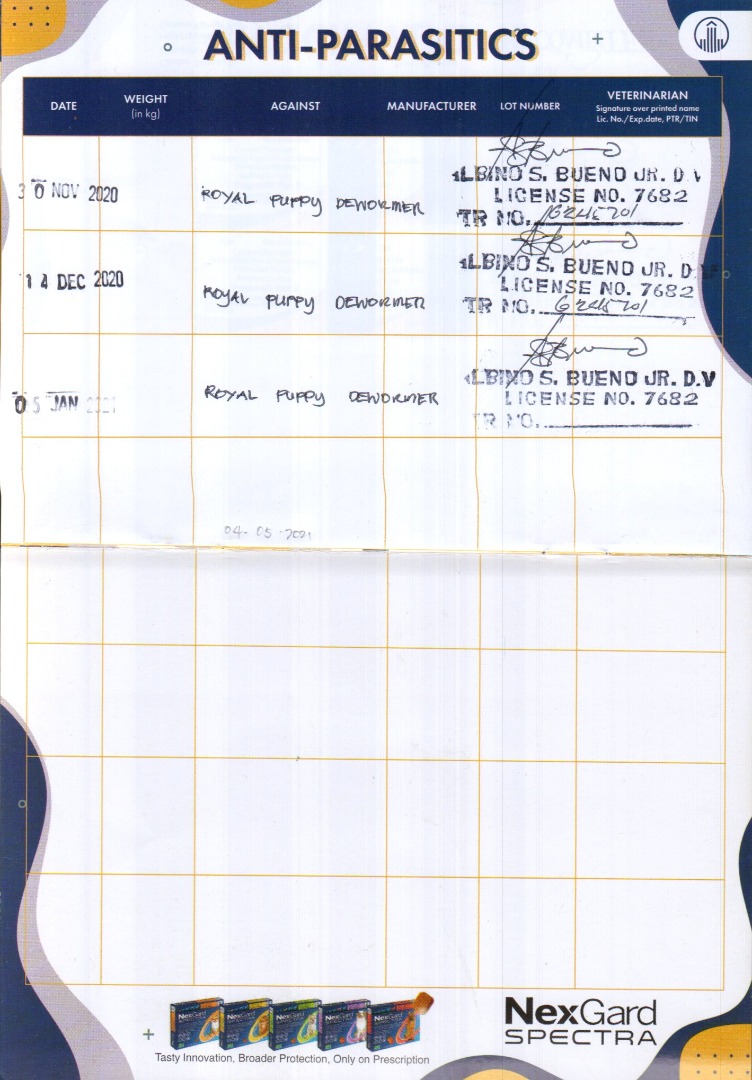 ANTI-PARASITICS
DATE WEIGHT (in kg) AGAINST MANUFACTURER LOT NUMBER VETERINARIAN
Signature over printed name
Lic. No./Exp.date, PTR/TIN
30 NOV 2020 ROYAL PUPPY DEWORMER
LBINO S. BUENO JR. D.V
LICENSE NO. 7682
TR NO.
14 DEC 2020 ROYAL PUPPY DEWORMER
LBINO S. BUENO JR. D.V
LICENSE NO. 7682
TR NO.
05 JAN 2021 ROYAL PUPPY DEWORMER
LBINO S. BUENO JR. D.V
LICENSE NO. 7682
TR NO.
04-05-2021
NexGard
SPECTRA
Tasty Innovation, Broader Protection, Only on Prescription